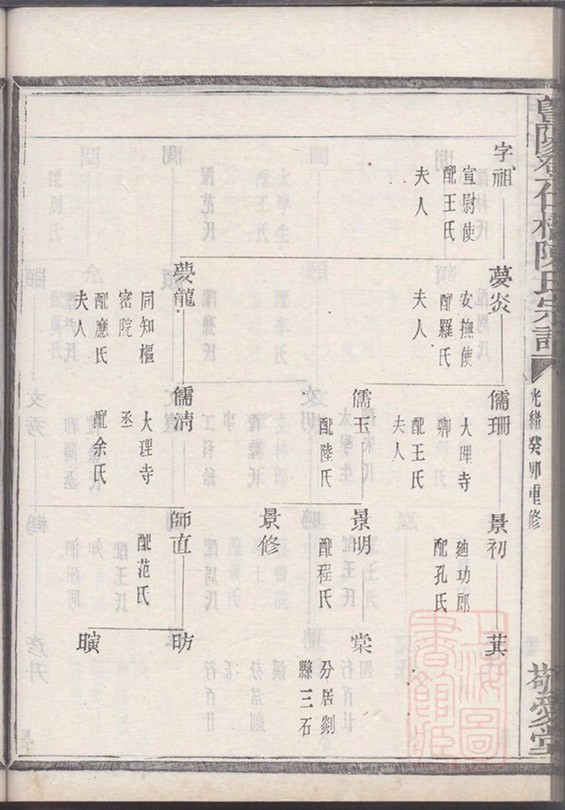 陳氏宗譜
光緒癸卯重修
敬愛堂
字祖
宣尉使
配王氏
夫人
夢炎
安撫使
配羅氏
夫人
夢龍
同知樞
密院
配應氏
夫人
儒珊
大理寺
卿
配王氏
夫人
儒玉
配陸氏
儒清
大理寺
丞
配余氏
景初
廸功郎
配孔氏
景明
配程氏
景修
師直
配范氏
萁
棠
分居剡
縣三石
昉
曠
上海圖
書館藏